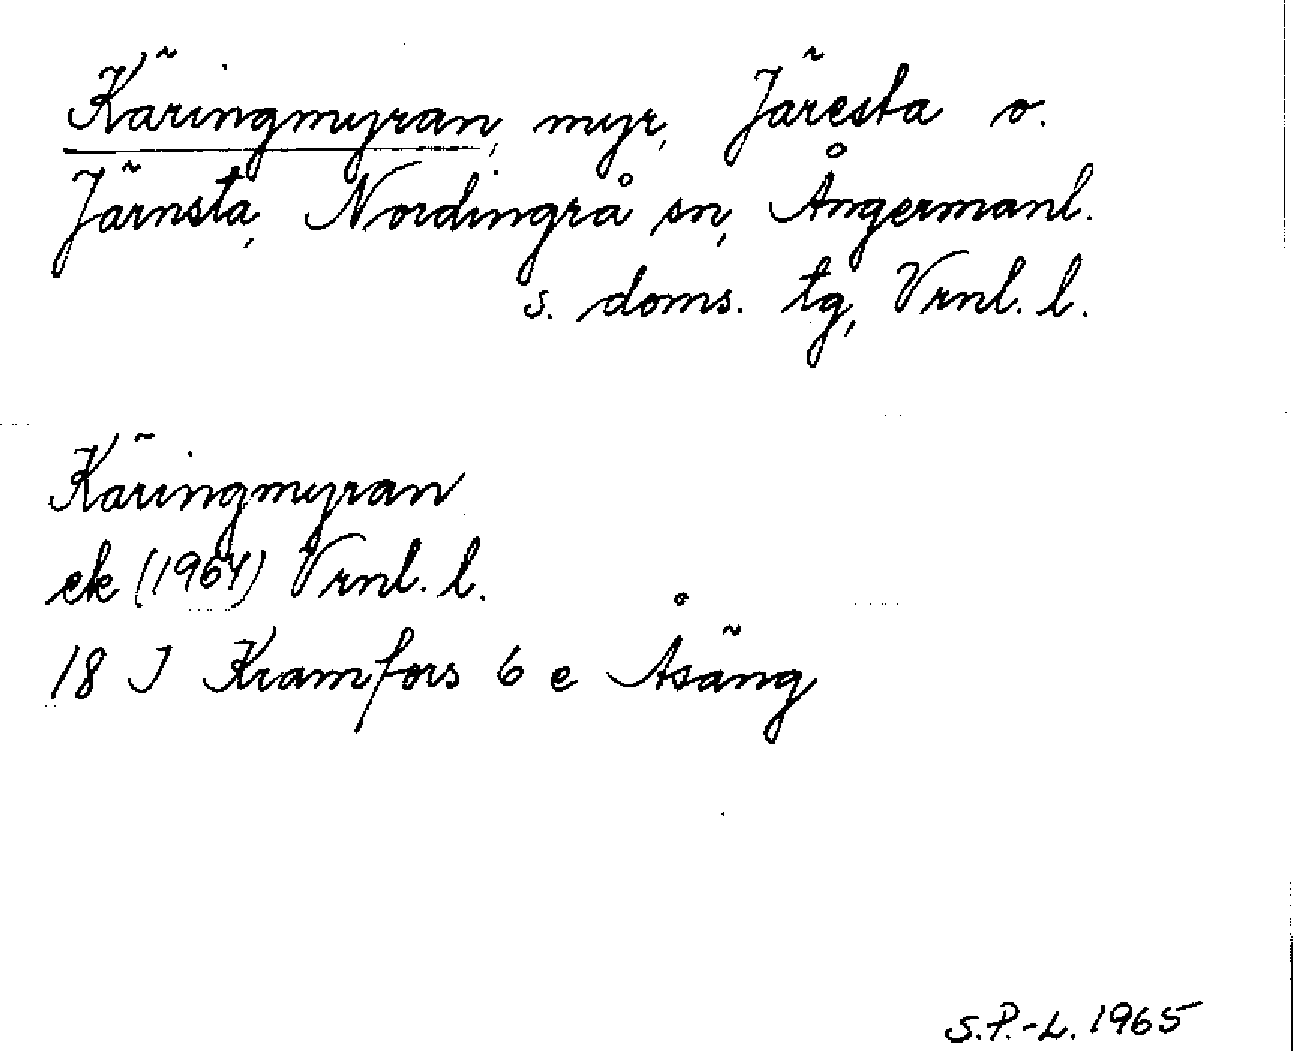 Käringmyran, myr, Järesta o.
Järnsta, Nordingrå sn, Ångermanl.
s. doms. tg, Vrnl. l.
Käringmyran
ek (1964) Vrnl. l.
18 I Kramfors 6 e Åsäng
S.P.-L. 1965